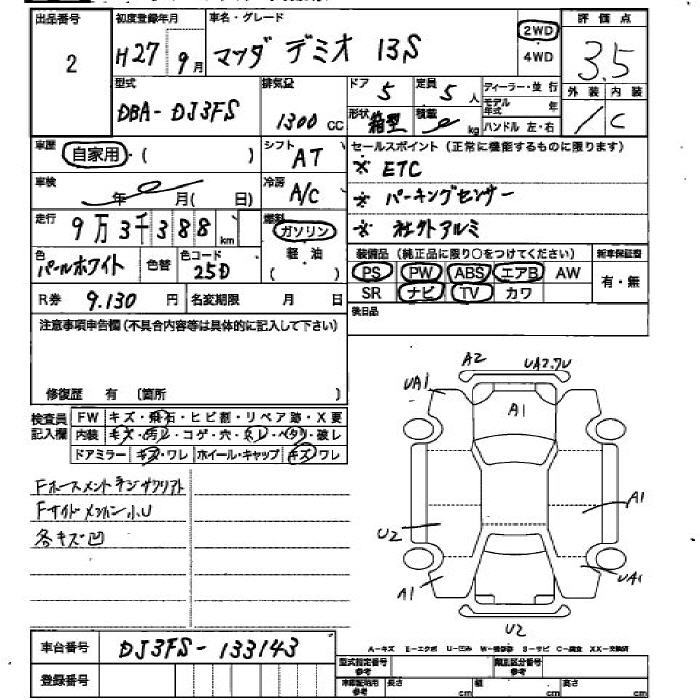 出品番号 初度登録年月 車名・グレード 評価点
2 H27 9月 マツダ デミオ 13S 2WD 4WD 3.5
型式 排気量 ドア 定員 ディーラー・並行 外装 内装
DBA-DJ3FS 1300 CC 5 5人 モデル年式 / C
形状 箱型 積載 kg ハンドル 左・右
車歴 自家用・( ) シフト AT セールスポイント(正常に機能するものに限ります)
※ ETC
車検 年 月( 日) 冷房 A/C ※ パーキングセンサー
走行 9万3千388km 燃料 ガソリン 軽・油 ( ) ※ 社外アルミ
色 パールホワイト 色替 色コード 25D
装備品(純正品に限り〇をつけてください) 新車保証書
PS PW ABS エアB AW 有・無
SR ナビ TV カワ
R券 9.130円 名変期限 月 日 後日品
注意事項申告欄(不具合内容等は具体的に記入して下さい)
修復歴 有 〔箇所 〕
検査員記入欄 FW キズ・飛石・ヒビ割・リペア跡・X要
内装 キズ・汚レ・コゲ・穴・スレ・ベタリ・破レ
ドアミラー キズ・ワレ ホイール・キャップ キズ・ワレ
各キズ凹
A2 UA2.7U
UA1
A1
A1
U2
A1 UA1
U2
車台番号 DJ3FS-133143
A-キズ E-エクボ U-凹み W-補修跡 S-サビ C-腐食 XX-交換済
登録番号 型式指定番号 参考 類別区分番号 参考
参考 長さ cm 幅 cm 高さ cm